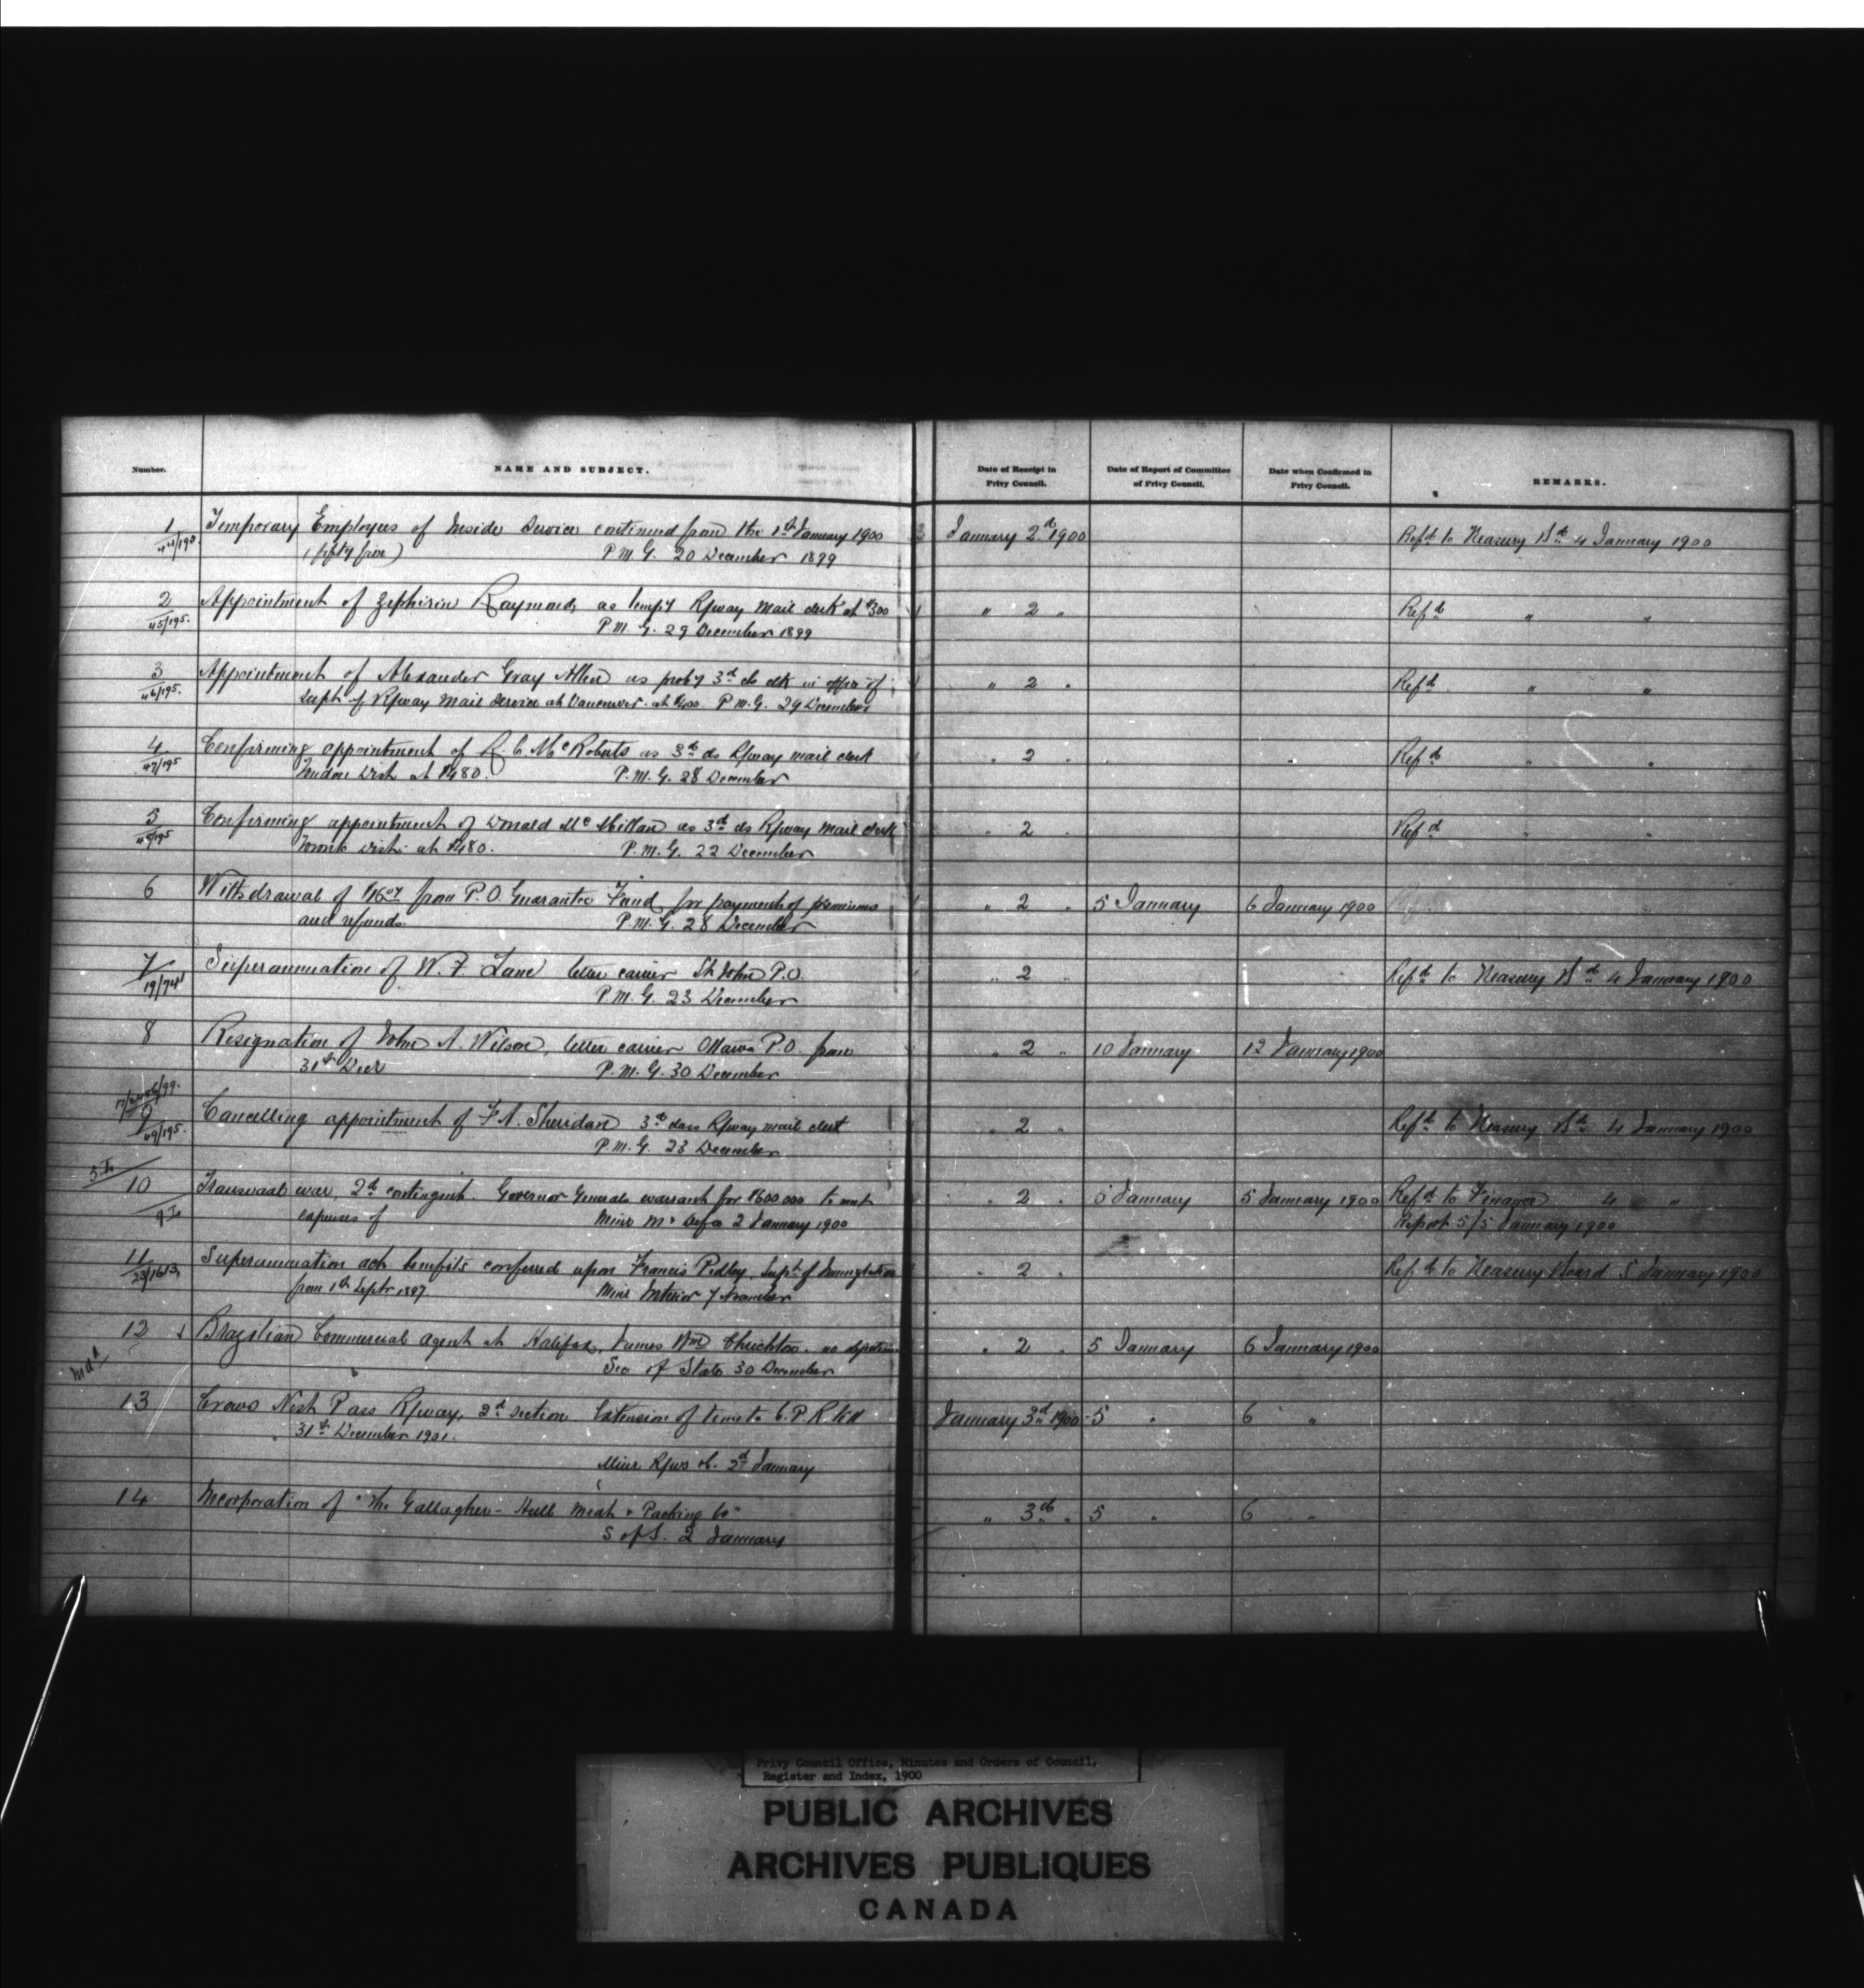 Number. NAME AND SUBJECT. Date of Receipt in Privy Council. Date of Report of Committee of Privy Council. Date when Confirmed in Privy Council. REMARKS.
1 Temporary Employees of Inside Service continued from the 1st January 1900 January 2d 1900 Refd to Treasury Bd 4 January 1900
44/195 (fifty five) P.M.G. 20 December 1899
2 Appointment of Zephirin Raymond, as tempy Rfway Mail clerk at $300 " 2 " Refd " "
45/195. P.M.G. 29 December 1899
3 Appointment of Alexander Gray Allen as proby 3d cls clk in office of " 2 " Refd " "
46/195. Supt of Rfway Mail Service at Vancouver. at $400 P.M.G. 29 December
4 Confirming appointment of R. C. McRoberts as 3d cls Rfway mail clerk " 2 " Refd " "
47/195 London Dist at $480. P.M.G. 28 December
5 Confirming appointment of Donald McMillan as 3d cls Rfway Mail clerk " 2 " Refd " "
48/195 Toronto Dist. at $480. P.M.G. 22 December
6 Withdrawal of from P.O. Guarantee Fund, for payment of premiums " 2 " 5 January 6 January 1900
and refunds. P.M.G. 28 December
7 Superannuation of W. F. Lane letter carrier St John P.O. " 2 " Refd to Treasury Bd 4 January 1900
19/741 P.M.G. 23 December
8 Resignation of John A. Wilson, letter carrier Ottawa P.O. from " 2 " 10 January 12 January 1900
31st Decr P.M.G. 30 December
9 Cancelling appointment of F A. Sheridan 3d class Rfway mail clerk " 2 " Refd to Treasury Bd 4 January 1900
49/195. P.M.G. 23 December
10 Transvaal war, 2d contingent. Governor Generals warrant for $600.000 to meet " 2 " 5 January 5 January 1900 Refd to Finance 4 " "
expenses of Minr M & Defce 2 January 1900 Report 5/5 January 1900
11 Superannuation act benefits conferred upon Francis Pedley, Supt of Immigration " 2 " Refd to Treasury Board 5 January 1900
23/1613 from 1st Septr 1897 Minr Interior 7 November
12 Brazilian Commercial agent at Halifax, James Wm Chrichton. no objection " 2 " 5 January 6 January 1900
Sec of State 30 December
13 Crows Nest Pass Rfway, 2d section. Extension of time to C.P.R. till January 3d 1900 5 " 6 "
31st December 1901.
Minr Rfws &c. 2d January
14 Incorporation of "The Gallagher-Hull Meat & Packing Co" " 3d " 5 " 6 "
S of S. 2 January
Privy Council Office, Minutes and Orders of Council,
Register and Index, 1900
PUBLIC ARCHIVES
ARCHIVES PUBLIQUES
CANADA